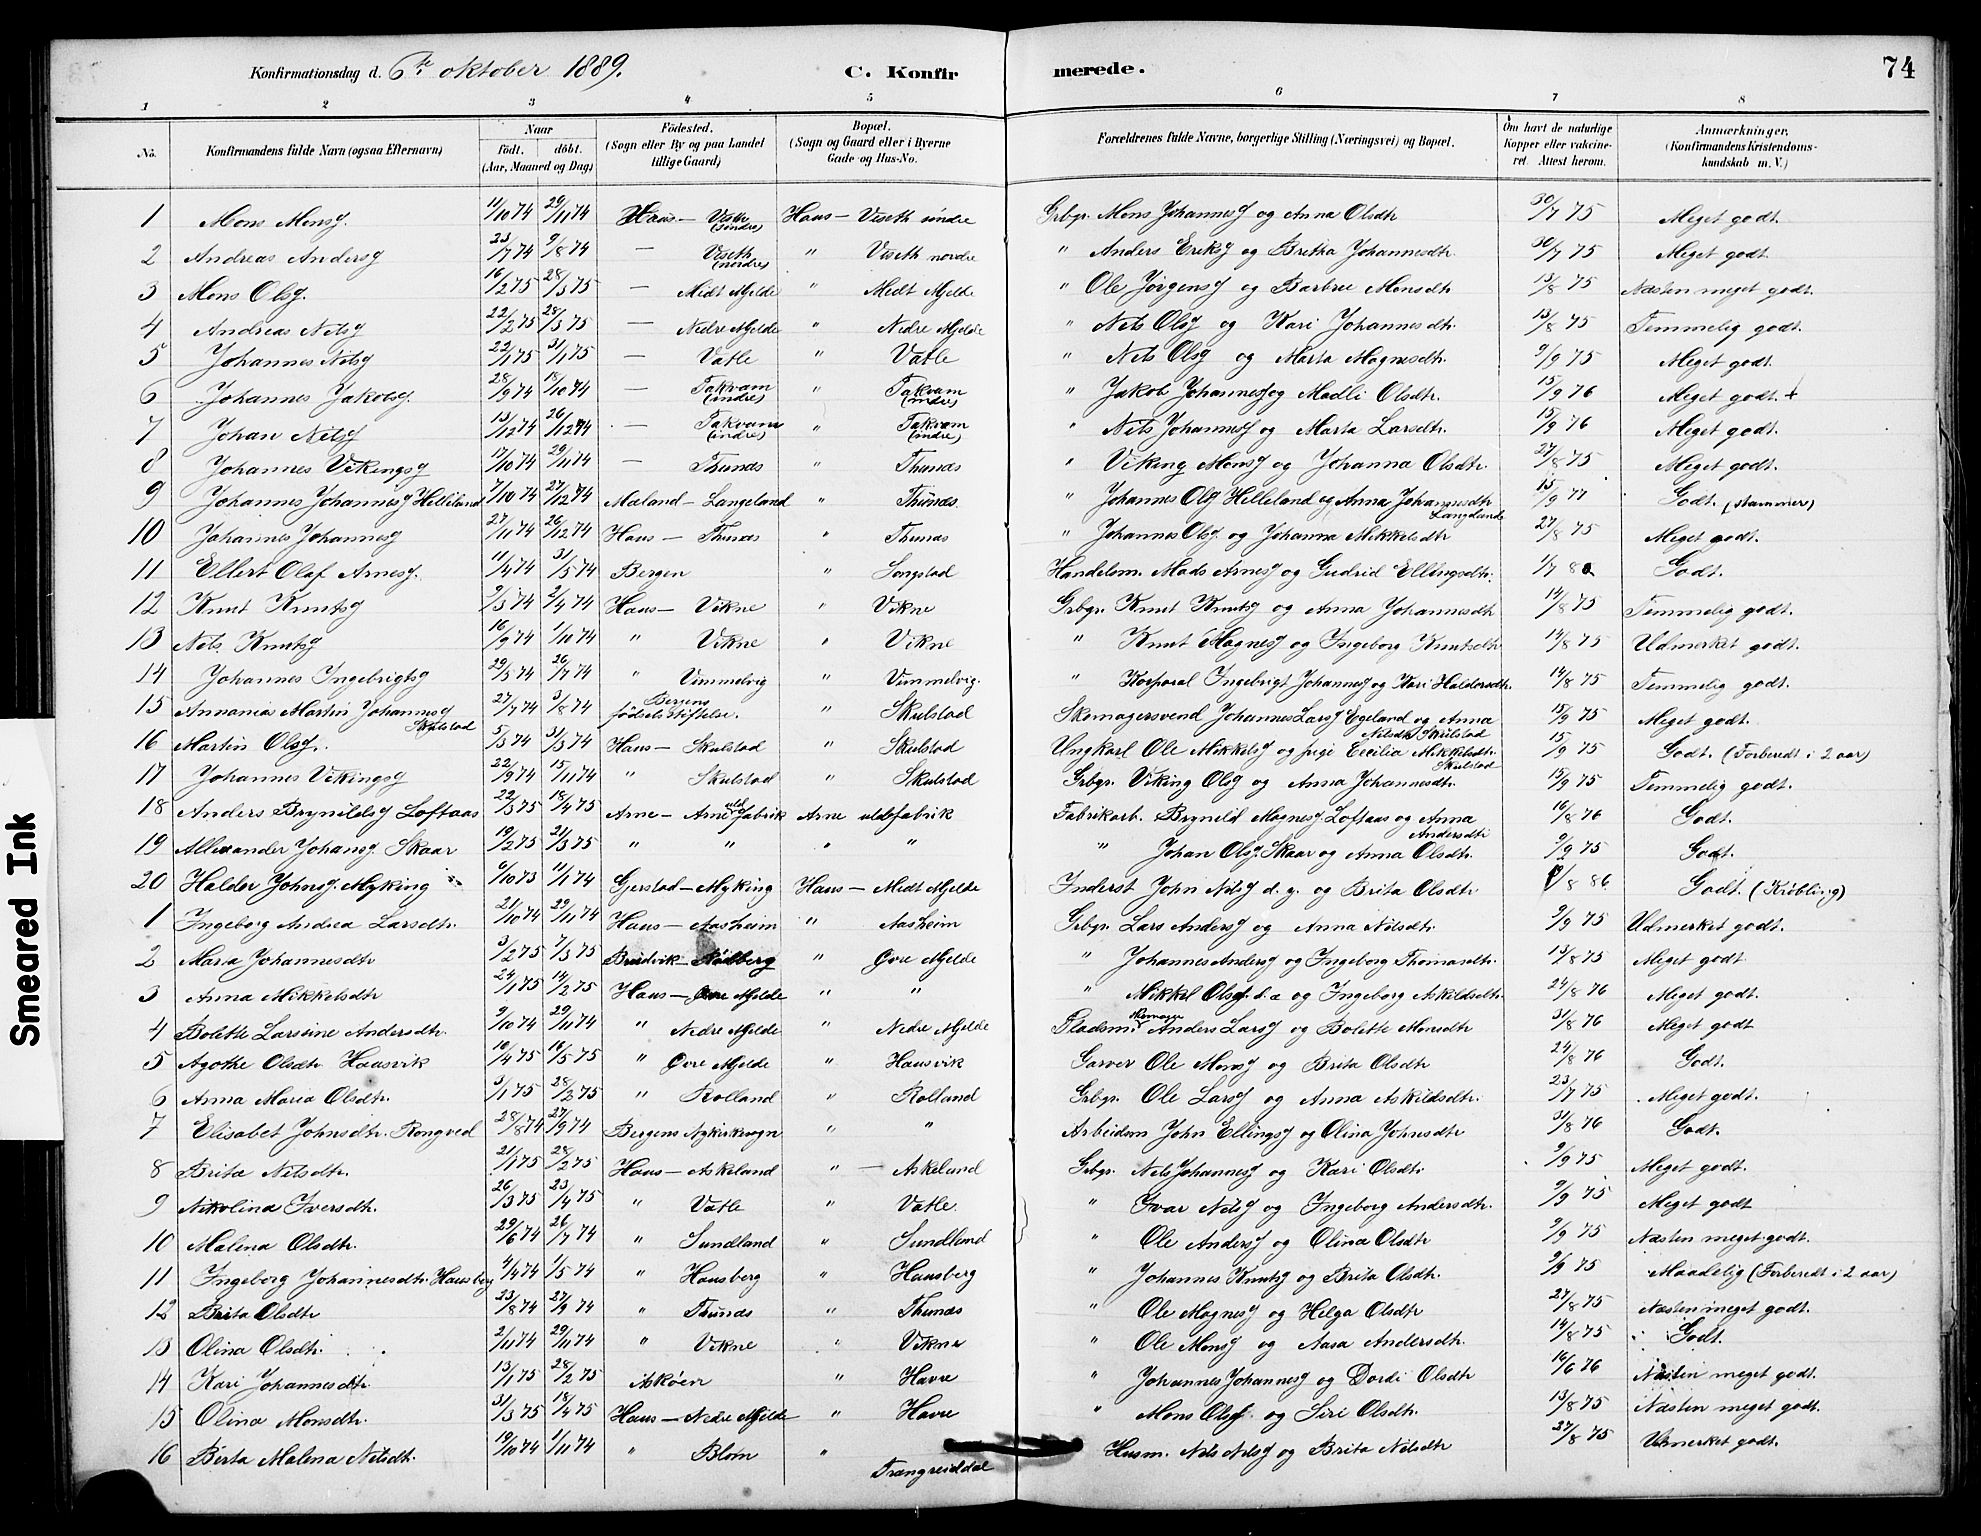 Konfirmationsdag d. 6te oktober 1889. C. Konfirmerede. 74
1 2 3 4 5 6 7 8
No. Konfirmandens fulde Navn (ogsaa Efternavn) Naar födt. döbt. (Aar, Maaned og Dag) Födested. (Sogn eller By og paa Landet tillige Gaard) Bopæl. (Sogn og Gaard eller i Byerne Gade og Hus-No. Forældrenes fulde Navne, borgerlige Stilling (Næringsvei) og Bopæl. Om havt de naturlige Kopper eller vakcineret. Attest herom. Anmærkninger. (Konfirmandens Kristendomskundskab m. V.)
1 Mons Monsj. 11/10 74 29/11 74 Haus — Viseth (söndre) Haus — Viseth söndre Grbgr. Mons Johannesj og Anna Olsdtr 30/7 75 Meget godt.
2 Andreas Andersj 23/7 74 9/8 74 — Viseth (nordre) " Viseth nordre " Anders Eriksj og Bretha Johannesdtr. 30/7 75 Meget godt.
3 Mons Olsj. 16/2 75 28/3 75 — Midt Mjelde " Midt Mjelde " Ole Jörgensj og Barbru Monsdtr. 13/8 75 Næsten meget godt.
4 Andreas Nilsj 22/2 75 28/3 75 — Nedre Mjelde " Nedre Mjelde " Nils Olsj og Kari Johannesdtr. 13/8 75 Temmelig godt.
5 Johannes Nilsj 22/1 75 31/1 75 — Vatle " Vatle " Nils Olsj og Marta Magnesdtr. 9/9 75 Meget godt.
6 Johannes Jakobsj. 28/9 74 18/10 74 — Takvam (indre) " Takvam (indre) " Jakob Johannesj og Madli Olsdtr. 15/9 76 Meget godt. +
7 Johan Nilsj 13/12 74 26/12 74 — Takvam (indre) " Takvam (indre) " Nils Johannesj og Marta Larsdtr. 15/9 76 Meget godt.
8 Johannes Vikingsj 17/10 74 29/11 74 — Thunæs " Thunæs " Viking Monsj og Johanna Olsdtr. 27/8 75 Meget godt.
9 Johannes Johannesj Helleland 7/10 74 27/12 74 Maland — Langeland " Thunæs " Johannes Olsj Helleland og Anna Johannesdtr Langelande 15/9 77 Godt. (stammer)
10 Johannes Johannesj 27/11 74 26/12 74 Haus — Thunæs " Thunæs " Johannes Olsj. og Johanna Mikkelsdtr 27/8 75 Meget godt.
11 Ellert Olaf Arnesj. 11/4 74 31/5 74 Bergen " Songstad Handelsm. Mads Arnesj og Gudrid Ellingsdtr. 1/7 80 Godt.
12 Knut Knutsj 9/3 74 2/4 74 Haus — Vikne " Vikne Grbgr. Knut Knutsj og Anna Johannesdtr 14/8 75 Temmelig godt.
13 Nils Knutsj 16/9 74 1/10 74 " Vikne " Vikne " Knut Magnesj og Ingeborg Knutsdtr 14/8 75 Udmerket godt.
14 Johannes Ingebrigtsj 29/5 74 26/7 74 " Vimmelvig " Vimmelvig. " Korporal Ingebrigt Johannesj og Kari Haldorsdtr. 14/8 75 Temmelig godt.
15 Annanias Martin Johannesj Skulstad 27/7 74 3/8 74 Bergens födselsstiftelse. " Skulstad Skomagersvend Johannes Larsj Egeland og Anna Nilsdtr Skulstad 15/9 75 Meget godt.
16 Martin Olsj. 5/3 74 31/3 74 Haus — Skulstad " Skulstad Ungkarl Ole Mikkelsj og pige Cecilia Mikkelsdtr. Skulstad 15/9 75 Godt. (Forberedt i 2 aar)
17 Johannes Vikingsj 22/9 74 15/11 74 " Skulstad " Skulstad Grbgr. Viking Olsj og Anna Johannesdtr. 15/9 75 Temmelig godt.
18 Anders Brynildsj Loftaas 22/3 75 18/4 75 Arne — Arne uldfabrik Arne uldefabrik Fabrikarb. Brynild Magnesj Loftaas og Anna Andersdtr 16/8 76 Godt.
19 Allexander Johansj. Skaar 19/2 75 21/3 75 " " " " " Johan Olsj. Skaar og Anna Olsdtr. 9/9 75 Godt.
20 Haldor Johnsj. Myking 6/10 73 11/1 74 Gjerstad — Myking Haus — Midt Mjelde Inderst John Nilsj d. y. og Brita Olsdtr. /8 86 Godt. (Kröbling)
1 Ingeborg Andrea Larsdtr. 21/10 74 29/11 74 Haus — Aasheim " Aasheim Grbgr. Lars Andersj og Anna Nilsdtr 9/9 75 Udmerket godt.
2 Maria Johannesdtr 3/2 75 7/3 75 Bruvik — Nödberg " Övre Mjelde " Johannes Andersj og Ingeborg Thomasdtr. 13/8 75 Meget godt
3 Anna Mikkelsdtr 24/1 75 14/2 75 Haus — Övre Mjelde " " " Mikkel Olsj. d. æ og Ingeborg Askildsdtr. 24/8 76 Meget godt.
4 Bolette Larsine Andersdtr. 9/10 74 29/11 74 " Nedre Mjelde " Nedre Mjelde Pladsm. Skomager Anders Larsj og Bolette Monsdtr 31/8 76 Meget godt
5 Agothe Olsdtr. Hausvik 10/4 75 16/5 75 " Övre Mjelde " Hausvik Garver Ole Monsj og Brita Olsdtr 24/8 76 Godt.
6 Anna Maria Olsdtr. 3/1 75 28/2 75 " Rolland " Rolland Grbgr. Ole Larsj og Anna Askildsdtr. 23/7 75 Meget godt.
7 Elisabet Johnsdtr. Rongved 28/8 74 27/9 74 Bergens Nykirkesogn " " Arbeidsm John Ellingsj og Olina Johnsdtr 31/8 76 Godt.
8 Brita Nilsdtr. 21/1 75 28/2 75 Haus — Askeland " — Askeland Grbgr. Nils Johannesj og Kari Olsdtr 9/9 75 Meget godt.
9 Nikolina Iversdtr. 26/3 75 23/4 75 " Vatle " Vatle. " Ivar Nilsj og Ingeborg Andersdtr. 9/9 75 Meget godt
10 Malena Olsdtr. 29/6 74 26/7 74 " Sundland " Sundland " Ole Andersj og Olina Olsdtr. 9/9 75 Næsten meget godt.
11 Ingeborg Johannesdtr. Hausberg 4/4 74 1/5 74 " Hausberg " Hausberg " Johannes Knutsj og Brita Olsdtr. 9/9 75 Maadelig (Forberedt i 2 aar)
12 Brita Olsdtr 23/8 74 27/9 74 " Thunæs " Thunæs " Ole Magnesj og Helga Olsdtr 27/8 75 Næsten meget godt.
13 Olina Olsdtr. 2/11 74 29/11 74 " Vikne " Vikne " Ole Monsj og Aasa Andersdtr. 14/8 75 Godt.
14 Kari Johannesdtr. 13/1 75 28/2 75 Asköen " Havre " Johannes Johannesj og Dordi Olsdtr 16/6 76 Næsten meget godt.
15 Olina Monsdtr. 31/3 75 18/4 75 Haus — Nedre Mjelde " Havre " Mons Olsj. og Siri Olsdtr. 13/8 75 Næsten meget godt.
16 Berta Malena Nilsdtr. 19/10 74 1/11 74 " Blom " Trængreiddal Husm. Nils Nilsj og Brita Nilsdtr 27/8 75 Udmerket godt.
Smeared Ink